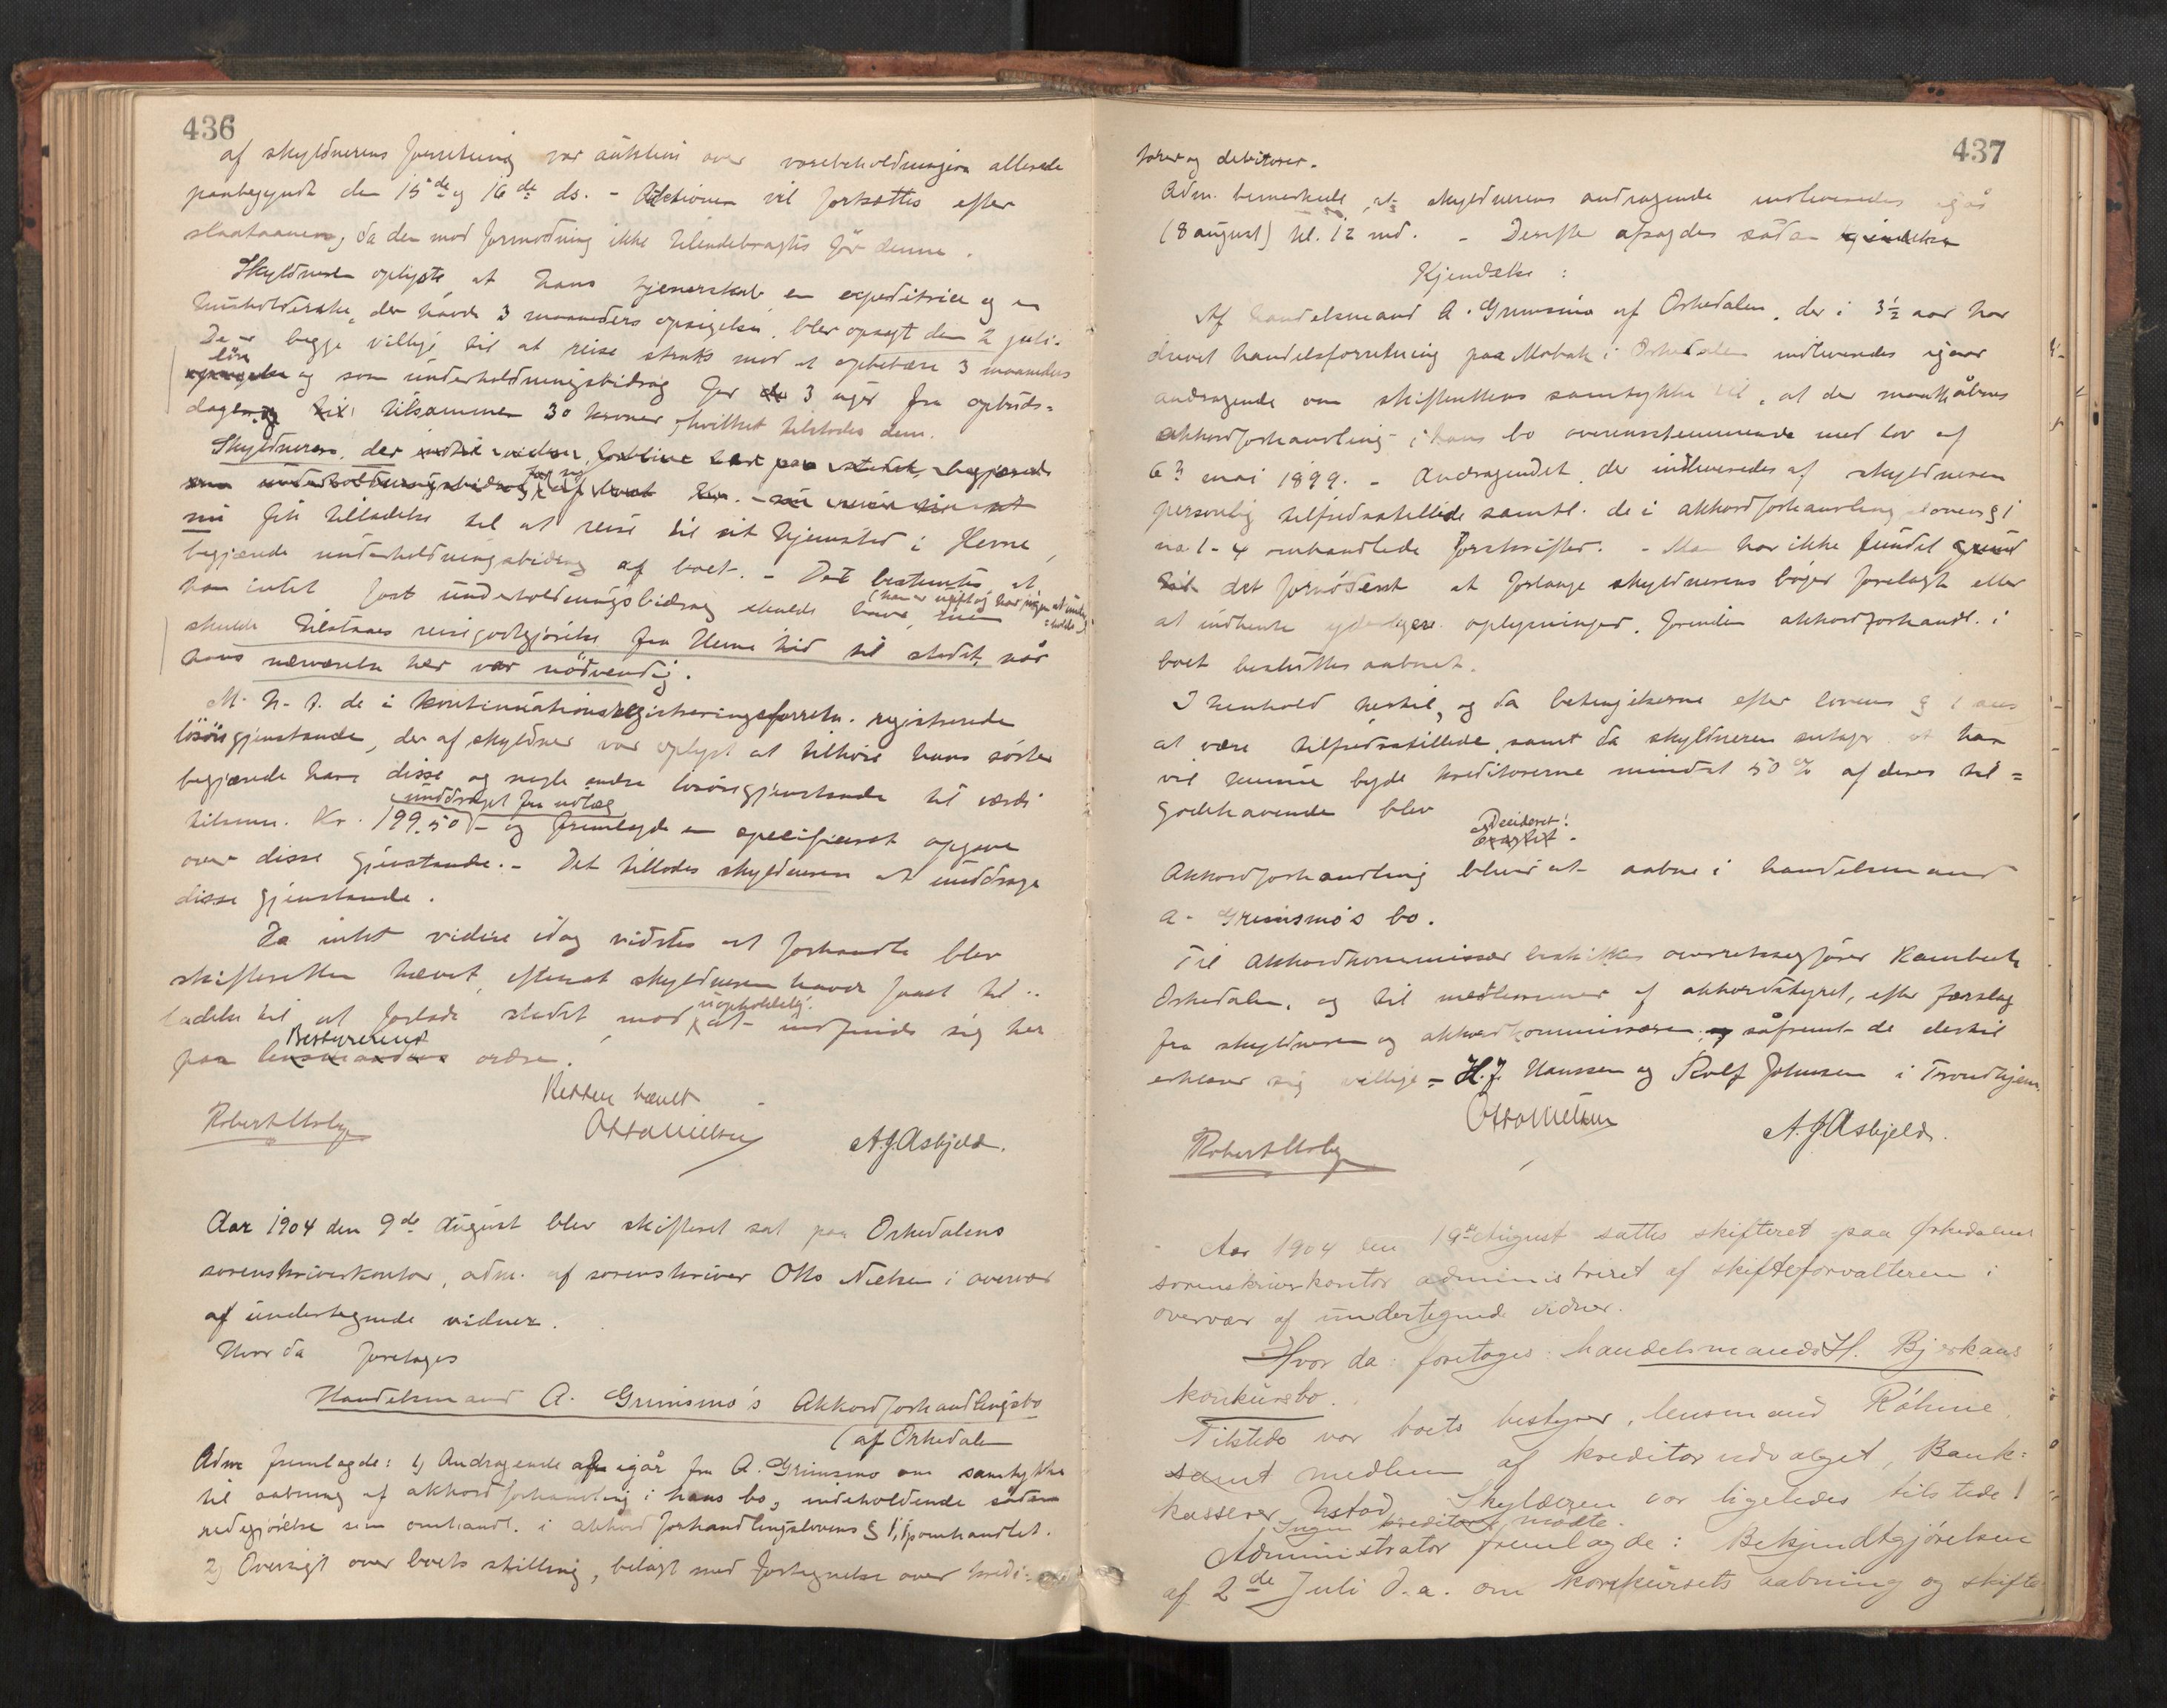 436
af skyldnerens forretning var auktion over varebeholdningen allerede
paabegyndt den 15de og 16de ds. - Auktionen vil fortsættes efter
slaataanen, da den mod formodning ikke tilendebragtes før denne.
Skyldneren oplyste, at hans tjenerskab en expeditrice og en
husholderske, der havde 3 maaneders opsigelse, blev opsagt den 2 juli.
De er begge villige til at reise straks mod at oppebære 3 maaneders
løn
og som underholdningsbidrag for 3 uger fra opbuds=
dagen tilsammen 30 kroner, hvilket tilstodes dem.
Skyldneren, der
nu fik tilladelse til at reise til sit hjemsted i Hevne,
begjærede underholdningsbidrag af boet. - Det bestemtes, at
han intet fast underholdningsbidrag skulde have, men
(han er ugift og har ingen at under=
holde)
skulde tilstaaes reisegodtgjørelse fra Hevne hid til stedet, når
hans nærværelse her var nødvendig.
M. h. t. de i kontinuationsregistreringsforretn. registrerede
løsøregjenstande, der af skyldner var oplyst at tilhøre hans søster
begjærede han disse og nogle andre løsøregjenstande til værdi
unddraget fra udlæg
tilsam. Kr. 199.50 - og fremlagde en specificeret opgave
over disse gjenstande. - Det tillodes skyldneren at unddrage
disse gjenstande.
Da intet videre idag vidstes at forhandle blev
skifteretten hævet, efterat skyldneren havde faaet til=
ladelse til at forlade stedet mod uopholdelig at indfinde sig her
Bestyrerens
paa lensmandens ordre.
Retten hævet
Robert Moby
Otto Nielsen
A. J. Asbjeld.
Aar 1904 den 9de August blev skifteret sat paa Orkedalens
sorenskriverkontor, adm. af sorenskriver Otto Nielsen i overvær
af undertegnede vidner.
Hvor da foretoges
Handelsmand A. Grimsmo's Akkordforhandlingsbo
(af Orkedalen
Adm fremlagde: 1) Andragende af igår fra A. Grimsmo om samtykke
til aabning af akkordforhandling i hans bo, indeholdende sådan
redegjørelse som omhandl. i akkordforhandlingslovens § 1, omhandlet.
2) Oversigt over boets stilling, bilagt med fortegnelse over kredi=
437
torer og debitorer.
Adm. bemerkede, at skyldnerens andragende indleveredes igår
(8 august) kl. 12 md. - Derefter afsagdes sådan
Kjendelse:
Af handelsmand A. Grimsmo af Orkedalen, der i 3½ aar har
drevet handelsforretning paa Mobak i Orkedalen indleveredes igaar
andragende om skifterettens samtykke til, at der maatte åbnes
akkordforhandling i hans bo overensstemmende med lov af
6 mai 1899. - Andragendet, der indleveredes af skyldneren
personlig tilfredsstillede samtl. de i akkordforhandlingslovens § 1
no 1-4 omhandlede forskrifter. - Man har ikke fundet
det fornødent at forlange skyldnerens bøger forelagt eller
at indhente yderligere oplysninger, forinden akkordforhandl. i
boet besluttes aabnet.
I henhold hertil, og da betingelserne efter lovens § 1 aees
at være tilfredsstillede, samt da skyldneren antager at han
vil kunne byde kreditorerne mindst 50 % af deres til=
godehavende blev
Decideret!
Akkordforhandling bliver at aabne i handelsmand
A. Grimsmo's bo.
Til Akkordkommissær beskikkes overretssagfører Kambech
Orkedalen, og til medlemmer af akkordstyret, efter forslag
fra skyldneren og akkordkommissæren, såfremt de dertil
erklærer sig villige = H. J. Hanssen og Rolf Johnsen i Trondhjem.
Robert Moby
Otto Nielsen
A. J. Asbjeld.
Aar 1904 den 19de August sattes skifteret paa Orkedalens
sorenskriverkontor administreret af skifteforvalteren i
overvær af undertegnede vidner.
Hvor da: foretoges: handelsmands H. Bjerkans
konkursbo.
Tilstede var boets bestyrer, lensmand Röhme
samt medlem af kreditorudvalget, Bank=
kasserer Ustad. Skyldneren var ligeledes tilstede!
Ingen kreditorer mødte.
Administrator fremlagde: Bekjendtgjørelsen
af 2de Juli d. a. om konkursets aabning og skifte